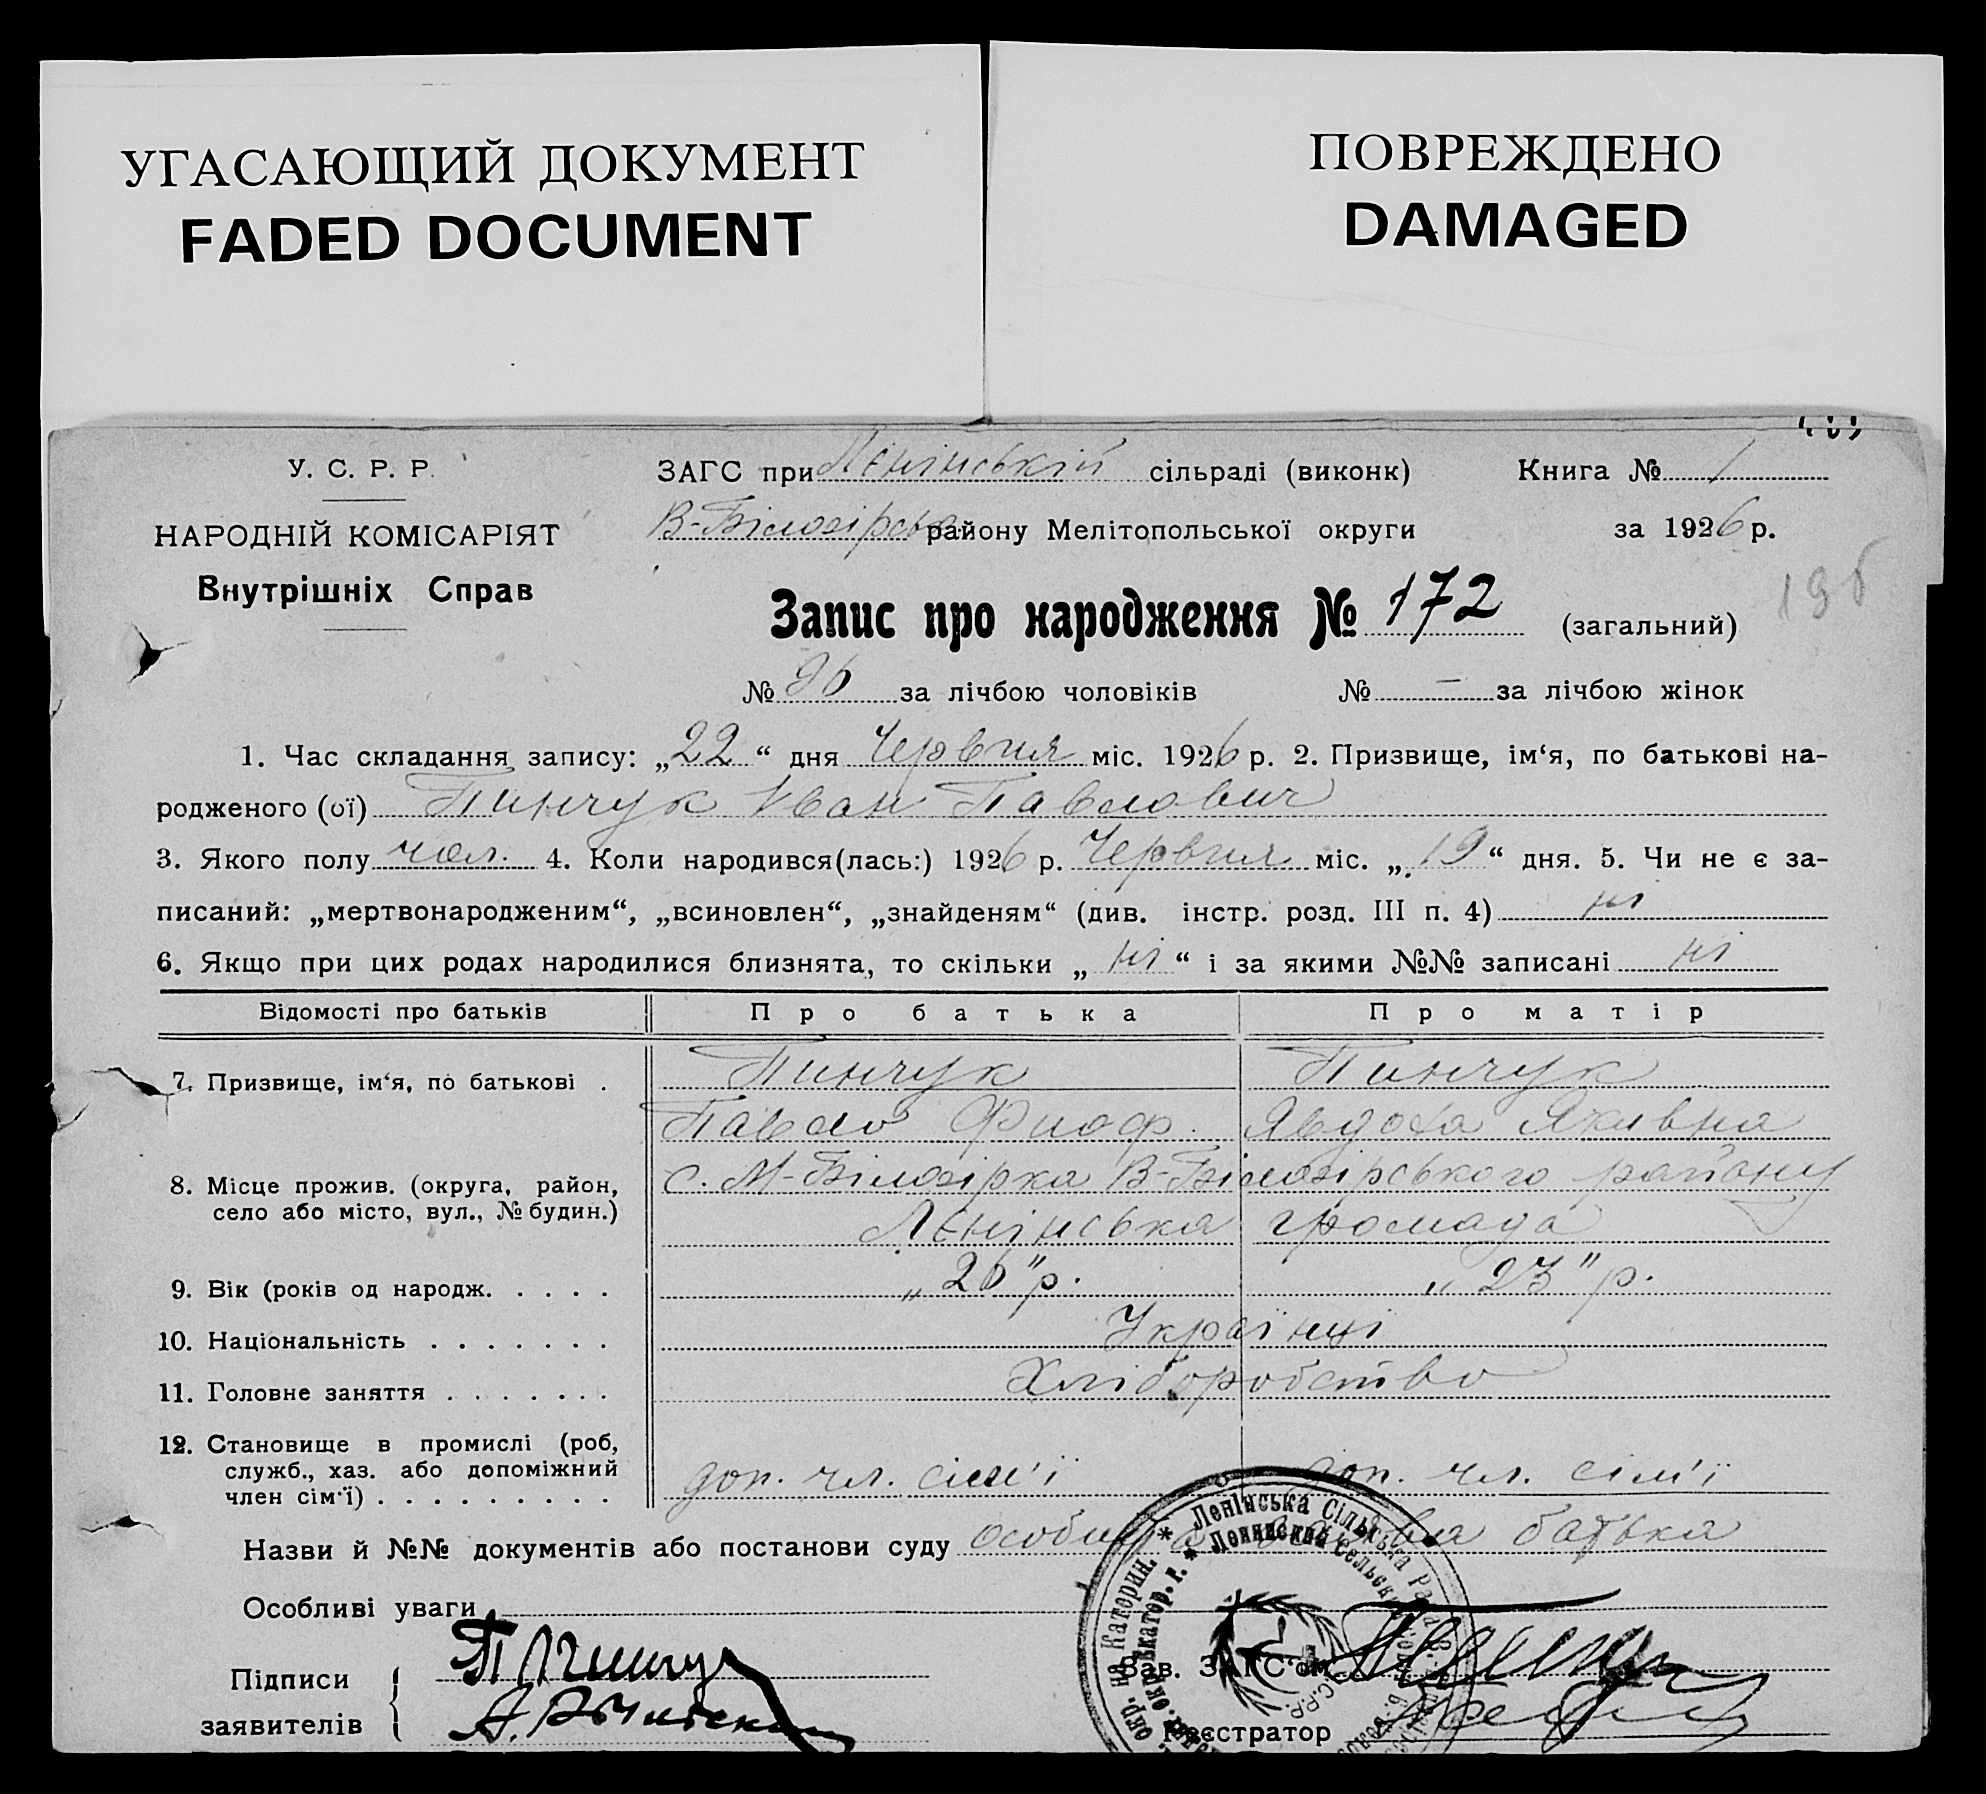 УГАСАЮЩИЙ ДОКУМЕНТ
FADED DOCUMENT
ПОВРЕЖДЕНО
DAMAGED
У. С. Р. Р.
НАРОДНІЙ КОМІСАРІЯТ
Внутрішніх Справ
ЗАГС при Лєнінській сільраді (виконк) Книга № 1
В-Білогірськ району Мелітопольської округи за 1926 р.
196
Запис про народження № 172 (загальний)
№ 96 за лічбою чоловіків № — за лічбою жінок
1. Час складання запису: „22“ дня Червня міс. 1926 р. 2. Призвище, ім‘я, по батькові на-
родженого (ої) Пинчук Іван Павлович
3. Якого полу чол. 4. Коли народився(лась:) 1926 р. Червня міс. „19“ дня. 5. Чи не є за-
писаний: „мертвонародженим“, „всиновлен“, „знайденям“ (див. інстр. розд. III п. 4) ні
6. Якщо при цих родах народилися близнята, то скільки „ні“ і за якими №№ записані ні
Відомості про батьків Про батька Про матір
7. Призвище, ім‘я, по батькові . Пинчук Пинчук
Павло Фиоф. Явдоха Якивна
8. Місце прожив. (округа, район, с. М-Білогірка В-Білогірського району
село або місто, вул., № будин.) Лєнінська громада
9. Вік (років од народж. . . . . „26" р. „23" р.
10. Національність . . . . . . . Українці
11. Головне заняття . . . . . . . Хліборобство
12. Становище в промислі (роб,
служб., хаз. або допоміжний доп. чл. сім'ї доп. чл. сім'ї
член сім‘ї) . . . . . . . . .
Назви й №№ документів або постанови суду батька
Особливі уваги
Підписи П Пинчук Зав. ЗАГС‘ом
заявителів Реєстратор
Ленінська Сільська Рада
Катерин.